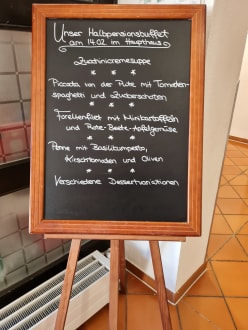 Unser Halbpensionsbuffet
am 14.02. im Haupthaus:
Zucchinicremesuppe
* * *
Piccata von der Pute mit Tomaten-
spaghetti und Zuckerschoten
* * *
Forellenfilet mit Minikartoffeln
und Rote-Beete-Apfelgemüse
* * *
Penne mit Basilikumpesto,
Kirschtomaten und Oliven
* * *
Verschiedene Dessertvariationen